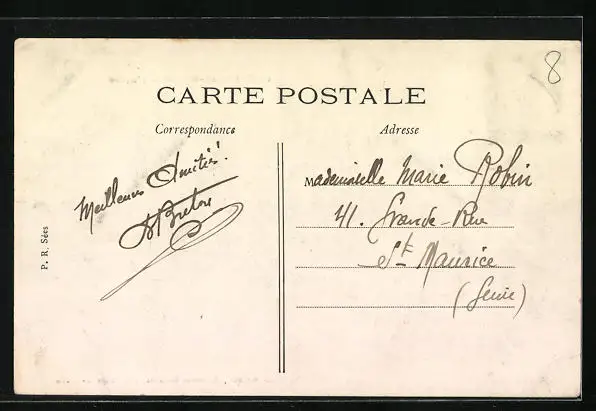 8
CARTE POSTALE
Correspondance
Adresse
Meilleures Amitiés!
Breton
Mademoiselle Marie Robin
41. Grande-Rue
St Maurice
(Seine)
P. R. Sées